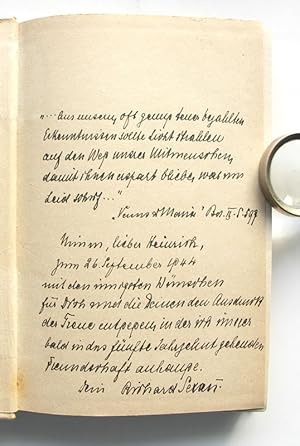 „... aus unsern, oft genug teuer bezahlten
Erkenntnissen sollte Licht strahlen
auf den Weg unsrer Mitmenschen,
damit ihnen erspart bliebe, was uns
Leid schuf ..."
Nimm, lieber Heinrich,
zum 26. September 1944
mit den innigsten Wünschen
für Dich und die Deinen den Ausdruck
der Treue entgegen, in der ich unserer
bald in das fünfte Jahrzehnt gehenden
Freundschaft anhange.
Dein Richard